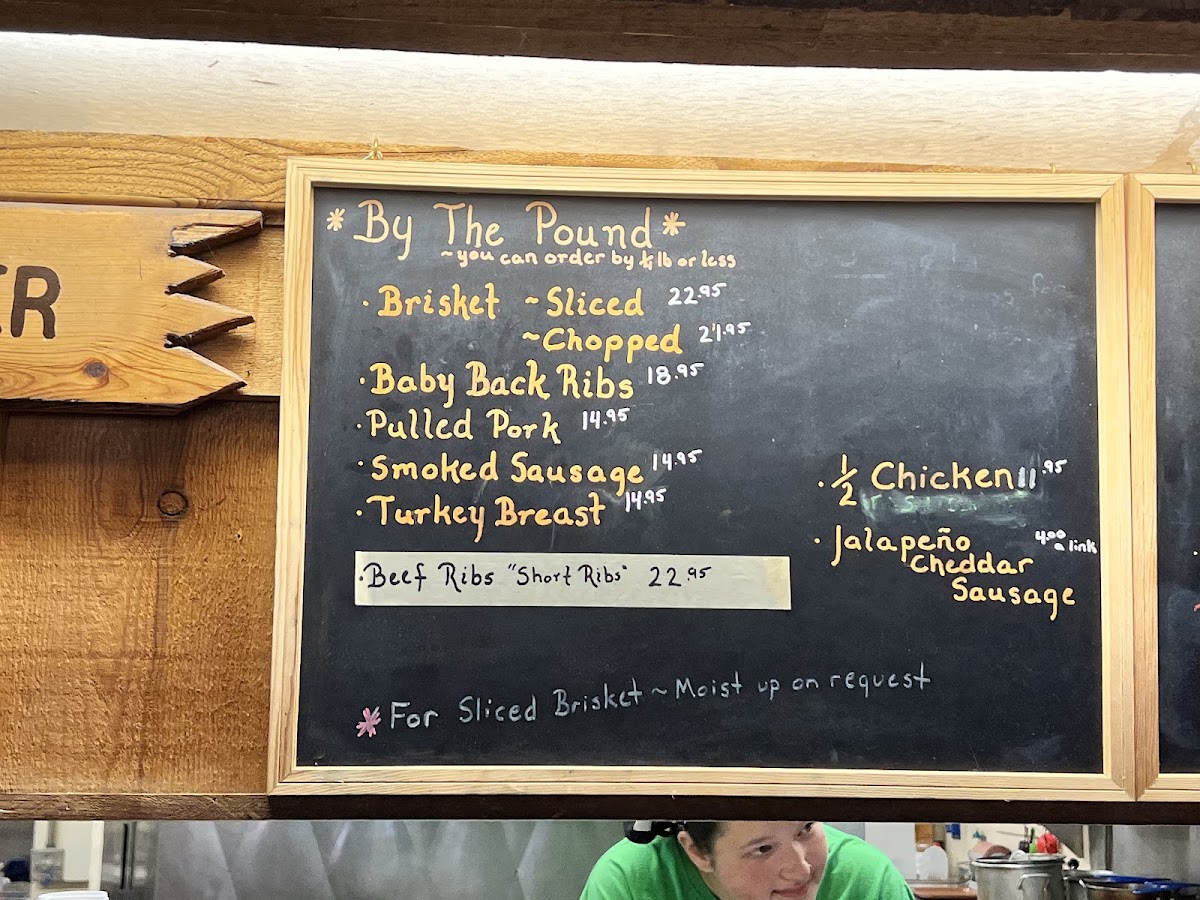 ER
* By The Pound *
~you can order by ¼ lb or less
· Brisket ~Sliced 22.95
~Chopped 21.95
· Baby Back Ribs 18.95
· Pulled Pork 14.95
· Smoked Sausage 14.95
· Turkey Breast 14.95
· Beef Ribs "Short Ribs" 22.95
· ½ Chicken 11.95
· Jalapeño 4.00
Cheddar a link
Sausage
* For Sliced Brisket ~ Moist up on request